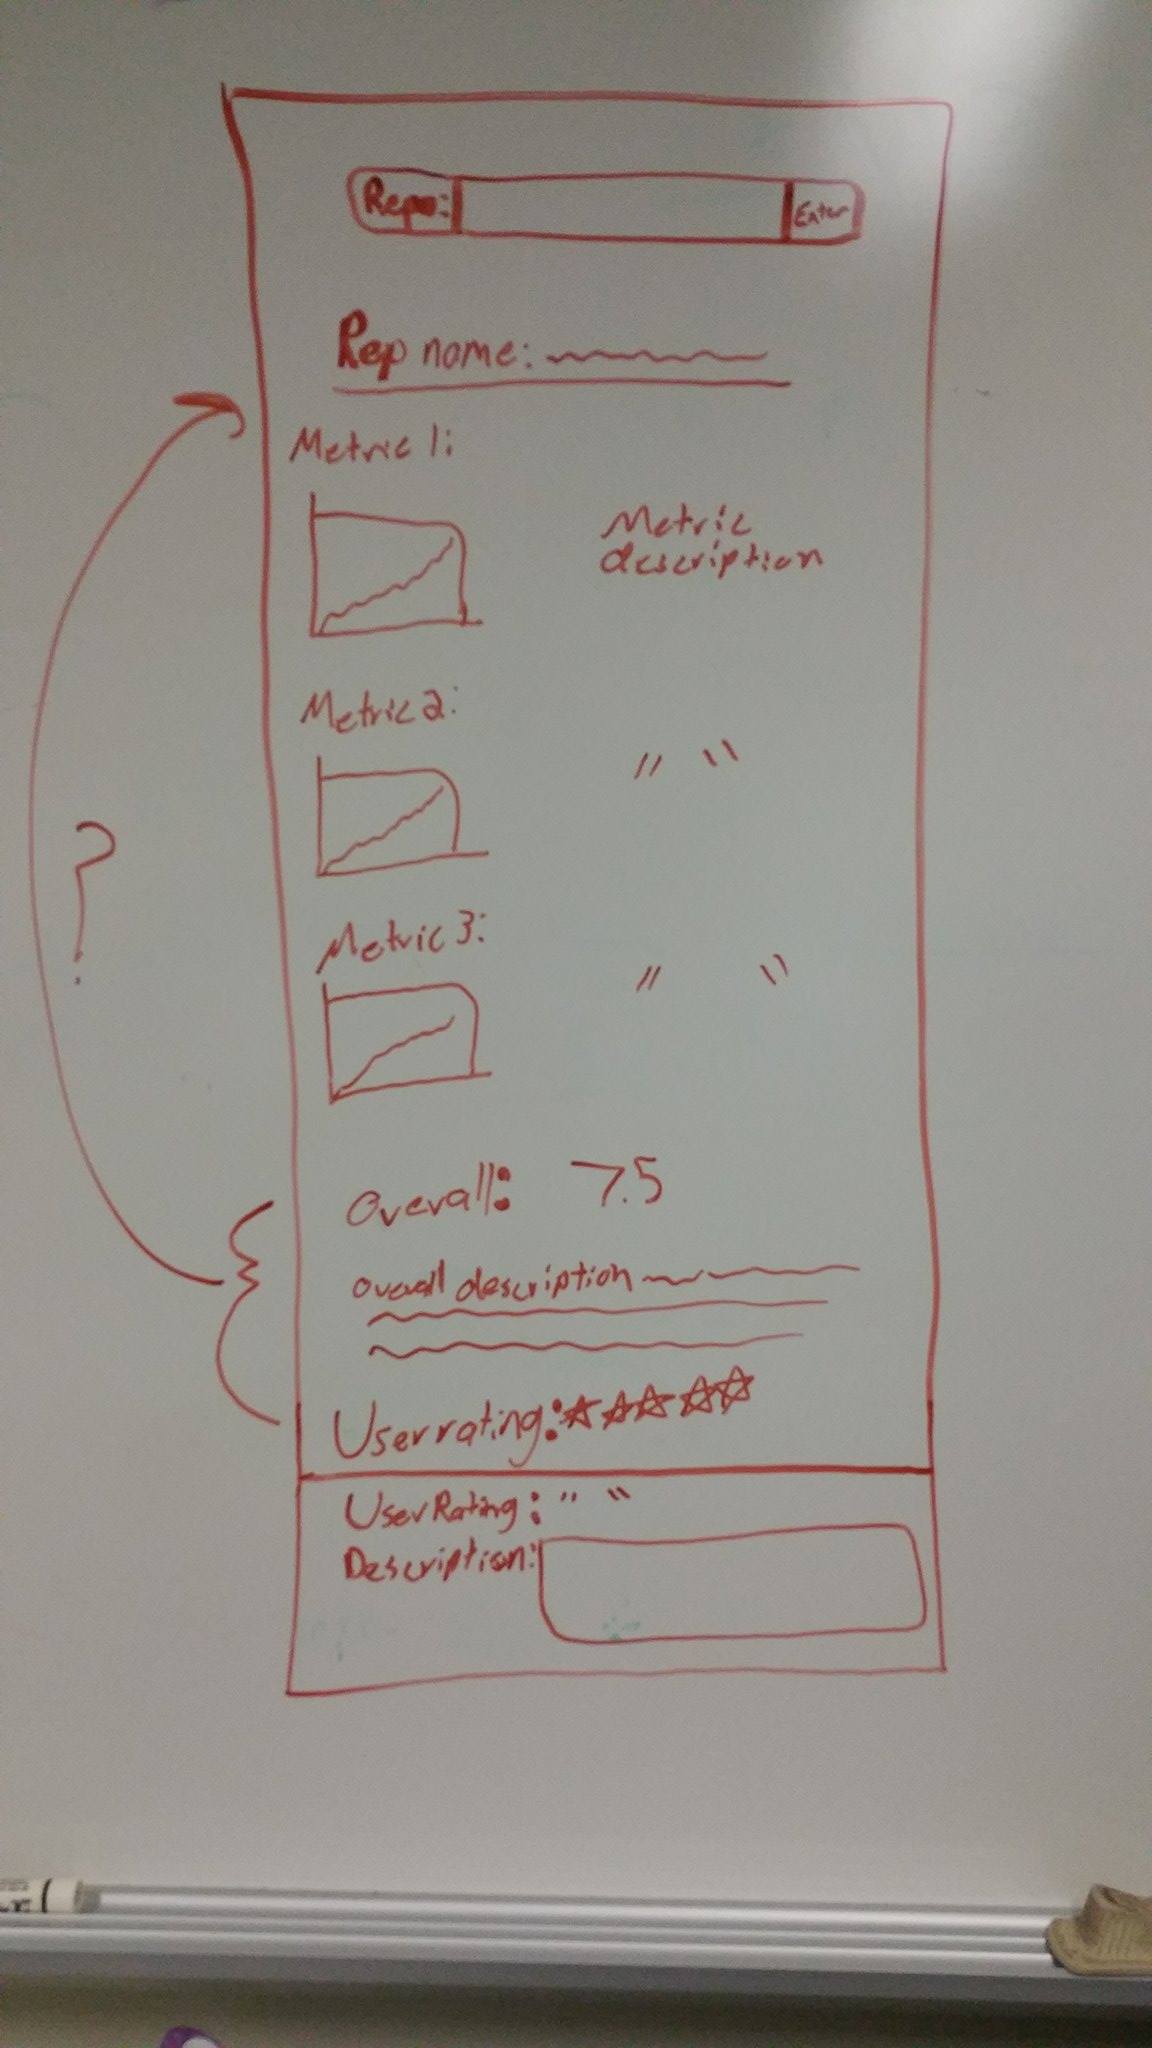 Repo: Enter
Rep name:
Metric 1:
Metric
description
Metric 2:
" "
Metric 3:
" "
?
Overall: 7.5
overall description
User rating:
User Rating: " "
Description: